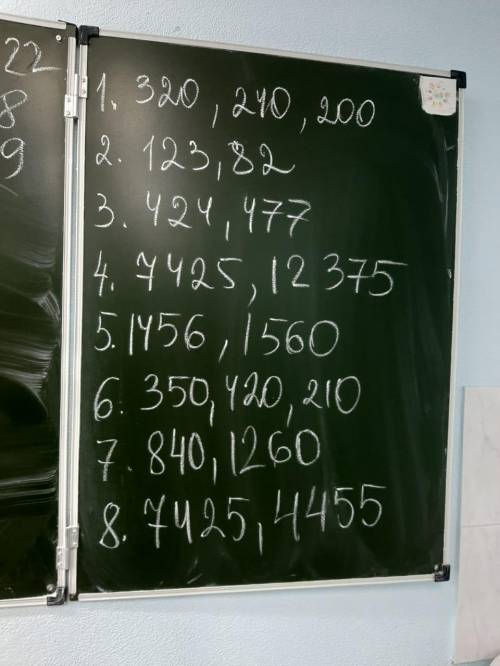 22
8
9
1. 320, 240, 200
2. 123, 82
3. 424, 477
4. 7425, 12375
5. 1456, 1560
6. 350, 420, 210
7. 840, 1260
8. 7425, 4455